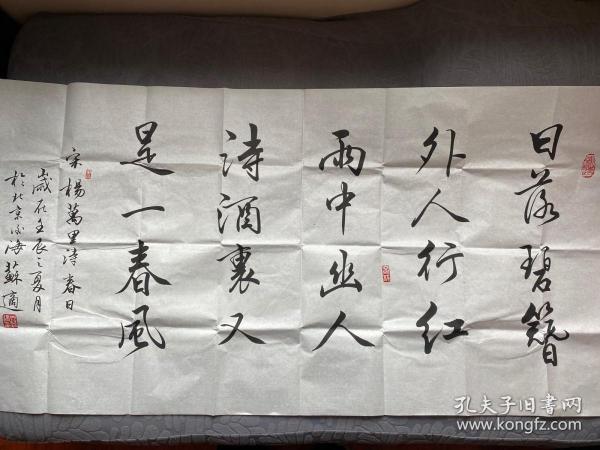 日落碧簪
外人行红
雨中幽人
诗酒裏又
是一春风
宋楊萬里诗春日
歲在壬辰之夏月
於北京後海蘇適
孔夫子旧書网
www.kongfz.com